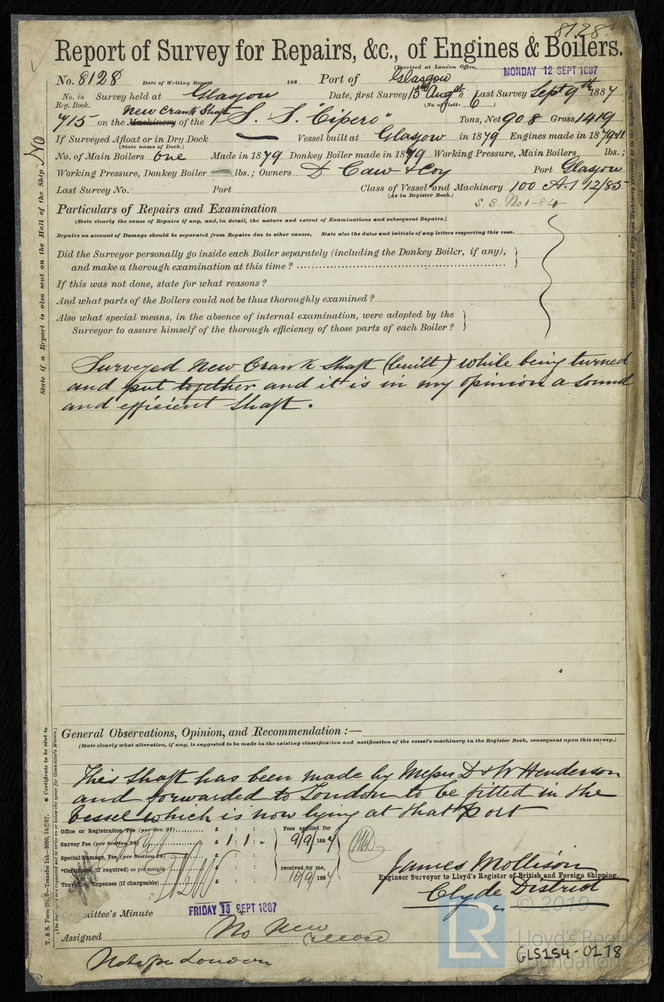 8128.
Report of Survey for Repairs, &c., of Engines & Boilers.
(Received at London Office,
MONDAY 12 SEPT 1887
No. 8128 Date of Writing Report 188 Port of Glasgow
No. in Survey held at Glasgow Date, first Survey 15th Augth Last Survey Sept 9th 1887
Reg. Book. (No. of Visits 6)
New Crank Shaft
715 on the Machinery of the S. S. "Cipero" Tons, Net 908 Gross 1419
If Surveyed Afloat or in Dry Dock — Vessel built at Glasgow in 1879 Engines made in 1879
(State name of Dock.)
No. of Main Boilers One Made in 1879 Donkey Boiler made in 1879 Working Pressure, Main Boilers lbs.;
Working Pressure, Donkey Boiler — lbs.; Owners D Caw & Coy Port Glasgow
Last Survey No. Port Class of Vessel and Machinery 100 A.1 12/85
(As in Register Book.) S.S. No 1-84
Particulars of Repairs and Examination
(State clearly the cause of Repairs if any, and, in detail, the nature and extent of Examinations and subsequent Repairs.)
Repairs on account of Damage should be separated from Repairs due to other causes. State also the dates and initials of any letters respecting this case.
Did the Surveyor personally go inside each Boiler separately (including the Donkey Boiler, if any),
and make a thorough examination at this time?
If this was not done, state for what reasons?
And what parts of the Boilers could not be thus thoroughly examined?
Also what special means, in the absence of internal examination, were adopted by the
Surveyor to assure himself of the thorough efficiency of those parts of each Boiler?
Surveyed New Crank Shaft (built) while being turned
and put together and it is in my opinion a sound
and efficient Shaft.
General Observations, Opinion, and Recommendation :—
(State clearly what alteration, if any, is suggested to be made in the existing classification and notification of the vessel's machinery in the Register Book, consequent upon this survey.)
This Shaft has been made by Messrs D & W Henderson
and forwarded to London to be fitted in the
Vessel which is now lying at that Port
Office or Registration Fee (per Sec. 27) £ : : Fees applied for
Survey Fee (per Section 28) £ 1 : 1 : 9/9/1887
Special Damage Fee (per Section 28) £ : :
Certificate (if required) as per margin received by me,
Travelling Expenses (if chargeable) £ : : 10/9/1887
James Mollison
Engineer Surveyor to Lloyd's Register of British and Foreign Shipping.
Clyde District
Committee's Minute FRIDAY 16 SEPT 1887
Assigned No New record
Note for London
State if a Report is also sent on the Hull of the Ship No
Certificate to be sent to
© 2019
LR
Lloyd's Register
Foundation
GLS154-0178